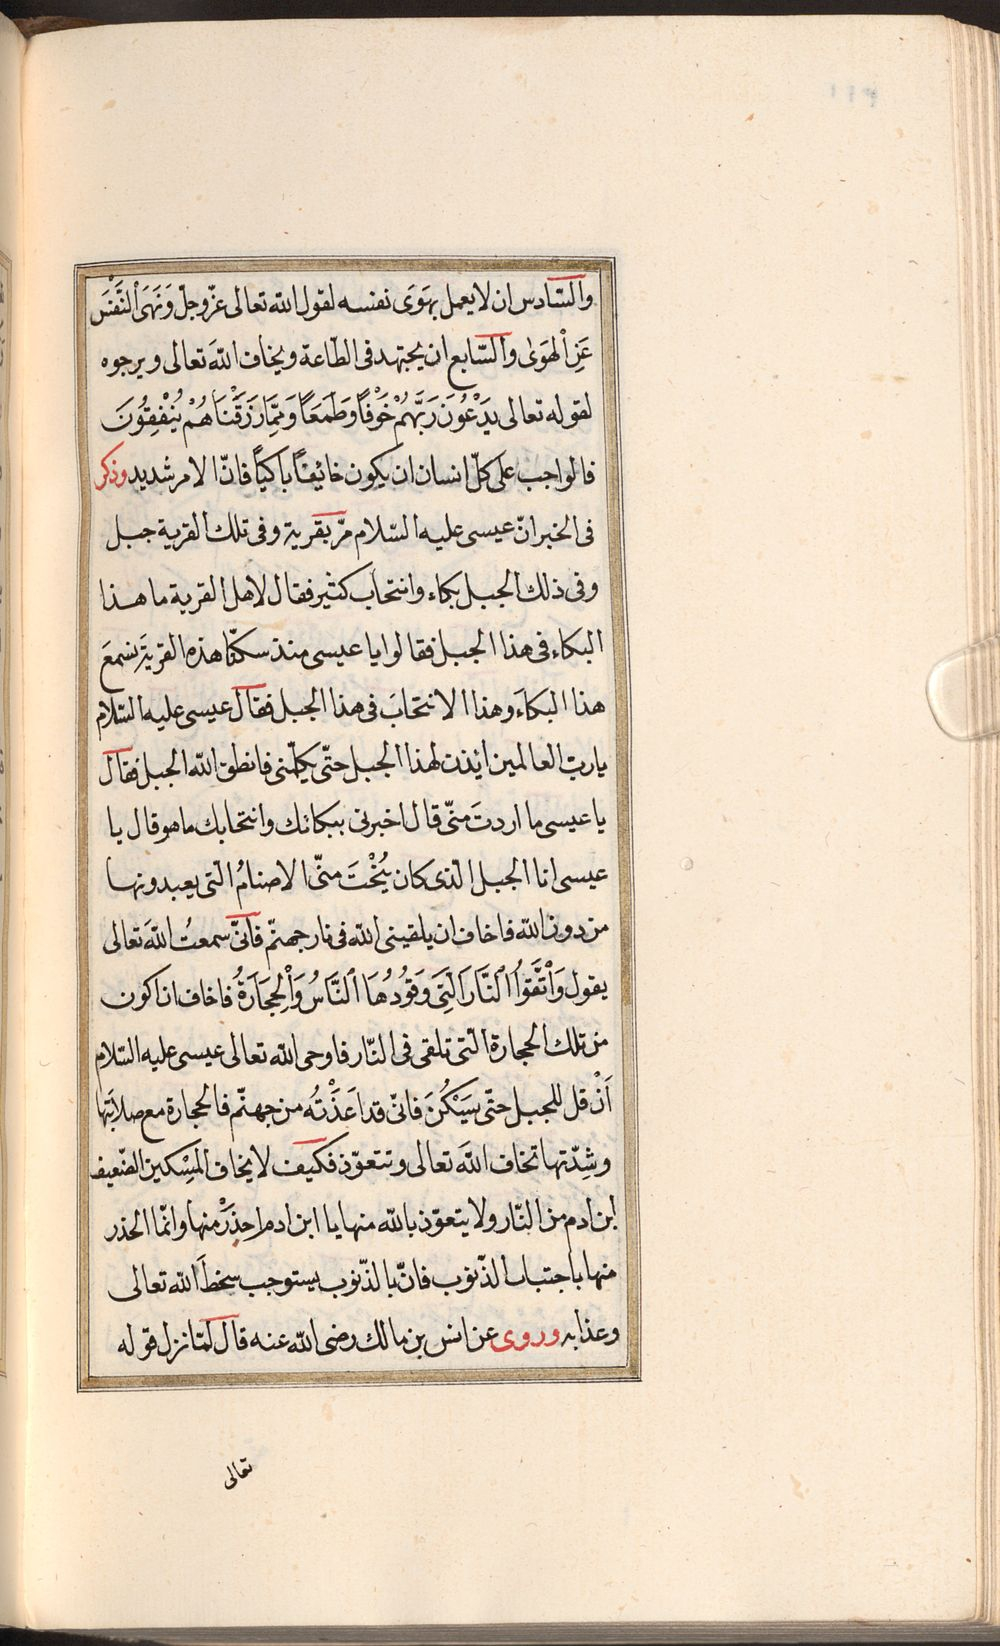 والسّادس ان لا يعمل بهَوَى نفسه لقول الله تعالى عزّ وجلّ وَنَهَى ٱلنَّفْسَ
عَنِ ٱلْهَوٰى والسّابع ان يجتهد فى الطّاعة ويخاف اللهَ تعالى ويرجوه
لقوله تعالى يَدْعُونَ رَبَّهُمْ خَوْفًا وَطَمَعًا وَمِمَّا رَزَقْنَاهُمْ يُنْفِقُونَ
فالواجب على كلّ انسان ان يكون خائفًا باكيًا فانّ الامر شديد وذكر
فى الخبر انّ عيسى عليه السّلام مرّ بقرية وفى تلك القرية جبل
وفى ذلك الجبل بكاء وانتحاب كثير فقال لاهل القرية ما هذا
البكاء فى هذا الجبل فقالوا يا عيسى منذ سكنّا هذه القريةَ نسمعَ
هذا البكاءَ وهذا الانتحابَ فى هذا الجبل فقال عيسى عليه السّلام
يا ربّ العالمين ائذن لهذا الجبل حتّى يكلّمنى فانطق الله الجبل فقال
يا عيسى ما اردتَ منّى قال اخبرنى ببكائك وانتحابك ما هو قال يا
عيسى انا الجبل الّذى كان يُنْحَتُ منّى الاصنامُ الّتى يعبدونها
من دون الله فاخاف ان يلقينى الله فى نار جهنّم فانّى سمعتُ اللهَ تعالى
يقول وَٱتَّقُوا ٱلنَّارَ ٱلَّتِى وَقُودُهَا ٱلنَّاسُ وَٱلْحِجَارَةُ فاخاف ان اكون
من تلك الحجارة الّتى تلقى فى النّار فاوحى الله تعالى عيسى عليه السّلام
اَنْ قل للجبل حتّى يَسْكُنَ فانّى قد اَعَذْتُه من جهنّم فالحجارة مع صلابَتِها
وشِدّتها تخاف اللهَ تعالى وتتعوّذ فكيف لا يخاف المِسْكين الضّعيف
ابن ادم من النّار ولا يتعوّذ بالله منها يا ابن ادم احذَرْ منها وانّما الحذر
منها باجتناب الذّنوب فانّ بالذّنوب يستوجب سخطَ الله تعالى
وعذابه وروى عن انس بن مالك رضى الله عنه قال لمّا نزل قوله
تعالى